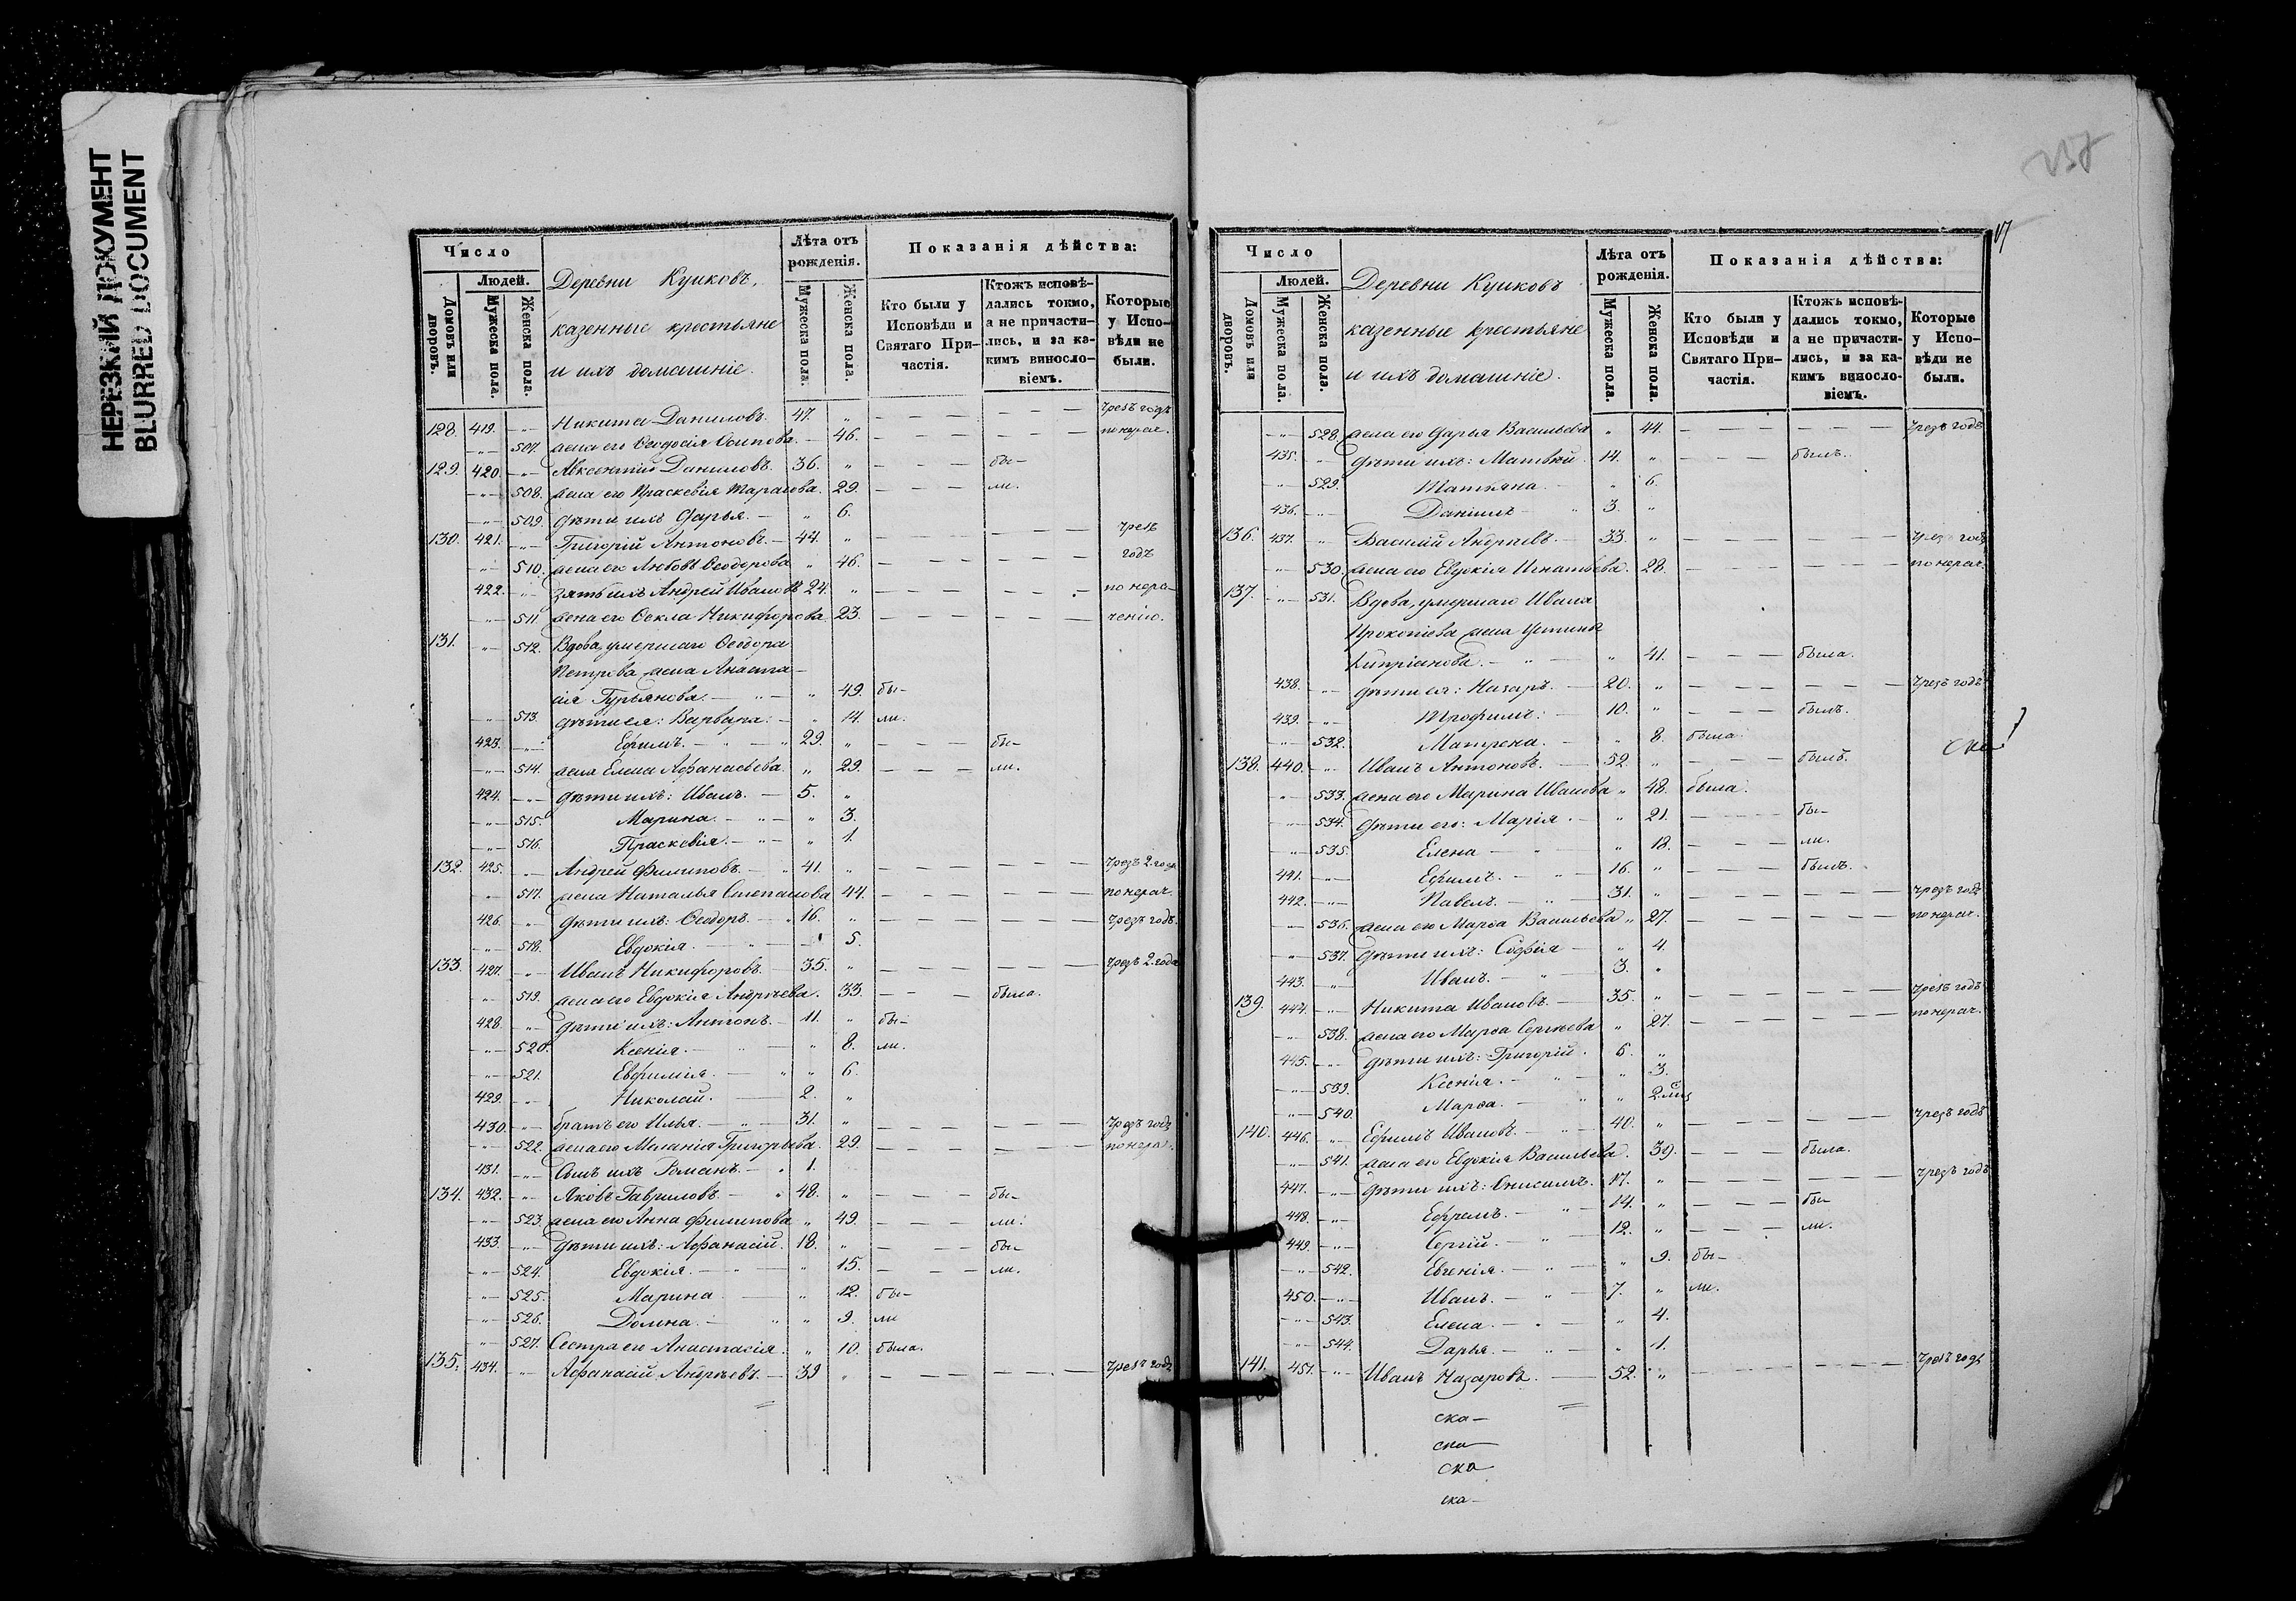 НЕРЕЗКИЙ ДОКУМЕНТ
BLURRED DOCUMENT
Число
Людей.
Домовъ или дворовъ.
Мужеска пола.
Женска пола.
Деревни Кушковъ,
казенные крестьяне
и ихъ домашніе.
Лѣта отъ рожденія.
Мужеска пола.
Женска пола.
Показанія дѣйства:
Кто были у Исповѣди и Святаго При-частія.
Ктожъ исповѣ-дались токмо, а не причасти-лись, и за ка-кимъ винослo-віемъ.
Которые у Испо-вѣди не были.
128. 419. -"- Никита Даниловъ. 47. " чрезъ годъ
-"- 507. жена его Ѳеодосія Осипова. - 46. по нерач.
129. 420. -"- Авксентій Даниловъ. 36. " бы-
-"- 508. жена его Праскевія Тарасова. 29. ли.
-"- 509. дѣти ихъ Дарья. - " 6.
130. 421. -"- Григорій Антоновъ. - 44. " чрезъ
-"- 510. жена его Любовь Ѳеодорова " 46. годъ
422. -"- зять ихъ Андрей Ивановъ 24. " по нера-
-"- 511 жена его Ѳекла Никифорова 23. ченію.
131. " 512. Вдова, умершаго Ѳеодора
Петрова жена Анаста-
сія Гурьянова. - " 49. бы-
-"- 513. дѣти ея: Варвара. - " 14. ли.
423. -"- Ефимъ. - 29. " бы-
-"- 514. жена Елена Аѳанасьева. " 29. ли.
424. -"- дѣти ихъ: Иванъ. - 5. "
-"- 515. Марина. - " 3.
-"- 516. Праскевія. - " 1.
132. 425. " Андрей Филиповъ. - 41. " чрезъ 2. года
" 517. жена Наталья Степанова 44. по нерач.
426. " дѣти ихъ: Ѳеодоръ. - 16. " чрезъ годъ.
-"- 518. Евдокія. - 5.
133. 427. -"- Иванъ Никифоровъ. - 35. " чрезъ 2. года
" 519. жена его Евдокія Андреева. 33. была.
428. -"- дѣти ихъ: Антонъ. - 11. " бы-
-"- 520. Ксенія. - " 8. ли.
-"- 521. Евфимія. - " 6.
429. -"- Николай. 2. "
430. -"- братъ его Илья. - 31. " чрезъ годъ
-"- 522. жена его Меланія Григорьева. 29. по нерач.
431. -"- Сынъ ихъ Романъ. - 1.
134. 432. -"- Яковъ Гавриловъ - 48. " бы-
-"- 523. жена его Анна Филипова " 49. ли.
433. -"- дѣти ихъ: Аѳанасій. 18. " бы-
-"- 524. Евдокія. - " 15. ли.
-"- 525. Марина " 12. бы-
-"- 526. Домна. - " 9. ли
" 527. Сестра его Анастасія. " 10. была.
135. 434. -"- Аѳанасій Андреевъ. - 39 " чрезъ годъ
Число
Людей.
Домовъ или дворовъ.
Мужеска пола.
Женска пола.
Деревни Кушковъ
казенные крестьяне
и ихъ домашніе.
Лѣта отъ рожденія.
Мужеска пола.
Женска пола.
Показанія дѣйства:
Кто были у Исповѣди и Святаго При-частія.
Ктожъ исповѣ-дались токмо, а не причасти-лись, и за ка-кимъ винослo-віемъ.
Которые у Испо-вѣди не были.
-"- 528. жена его Дарья Васильева " 44. чрезъ годъ
435. " дѣти ихъ: Матвѣй. 14. " былъ.
-"- 529. Татьяна. - " 6.
436. -"- Даніилъ - 3. "
136. 437. " Василій Андреевъ. - 33. " чрезъ годъ
-"- 530. жена его Евдокія Игнатьева. 28. по нерач.
137. -"- 531. Вдова, умершаго Ивана
Прокопіева жена Устинья
Кипріанова. - " 41. была.
438. -"- дѣти ея: Назаръ. - 20. " чрезъ годъ
439. -"- Трофимъ. - 10. " былъ.
-"- 532. Матрена. - " 8. была.
138. 440. -"- Иванъ Антоновъ. - 52. " былъ.
" 533. жена его Марина Иванова " 48. была.
-"- 534. дѣти его: Марія. - " 21. бы-
-"- 535. Елена - " 18. ли.
441. -"- Ефимъ. - 16. " былъ.
442. -"- Павелъ. - 31. " чрезъ годъ
-"- 536. жена его Марѳа Васильева " 27. по нерач.
" 537. дѣти ихъ: Софія - " 4.
443. -"- Иванъ. - 3. "
139. 444. -"- Никита Ивановъ. - 35. " чрезъ годъ
-"- 538. жена его Марѳа Сергѣева " 27. по нерач.
445. -"- дѣти ихъ: Григорій. 6. "
-"- 539. Ксенія. - " 3.
-"- 540. Марѳа. - " 2. мѣс
140. 446. -"- Ефимъ Ивановъ. - 40. " чрезъ годъ
-"- 541. жена его Евдокія Васильева. 39. была.
447. -"- дѣти ихъ: Онисимъ. 17. " чрезъ годъ
448. -"- Ефремъ. - 14. " бы-
449. -"- Сергій. - 12. " ли.
-"- 542. Евгенія. - " 9. бы-
450. -"- Иванъ. - 7. " ли.
-"- 543. Елена. - " 4.
-"- 544. Дарья. - " 1.
141. 451. -"- Иванъ Назаровъ. 52. " чрезъ годъ
ска-
ска
ска
ска-